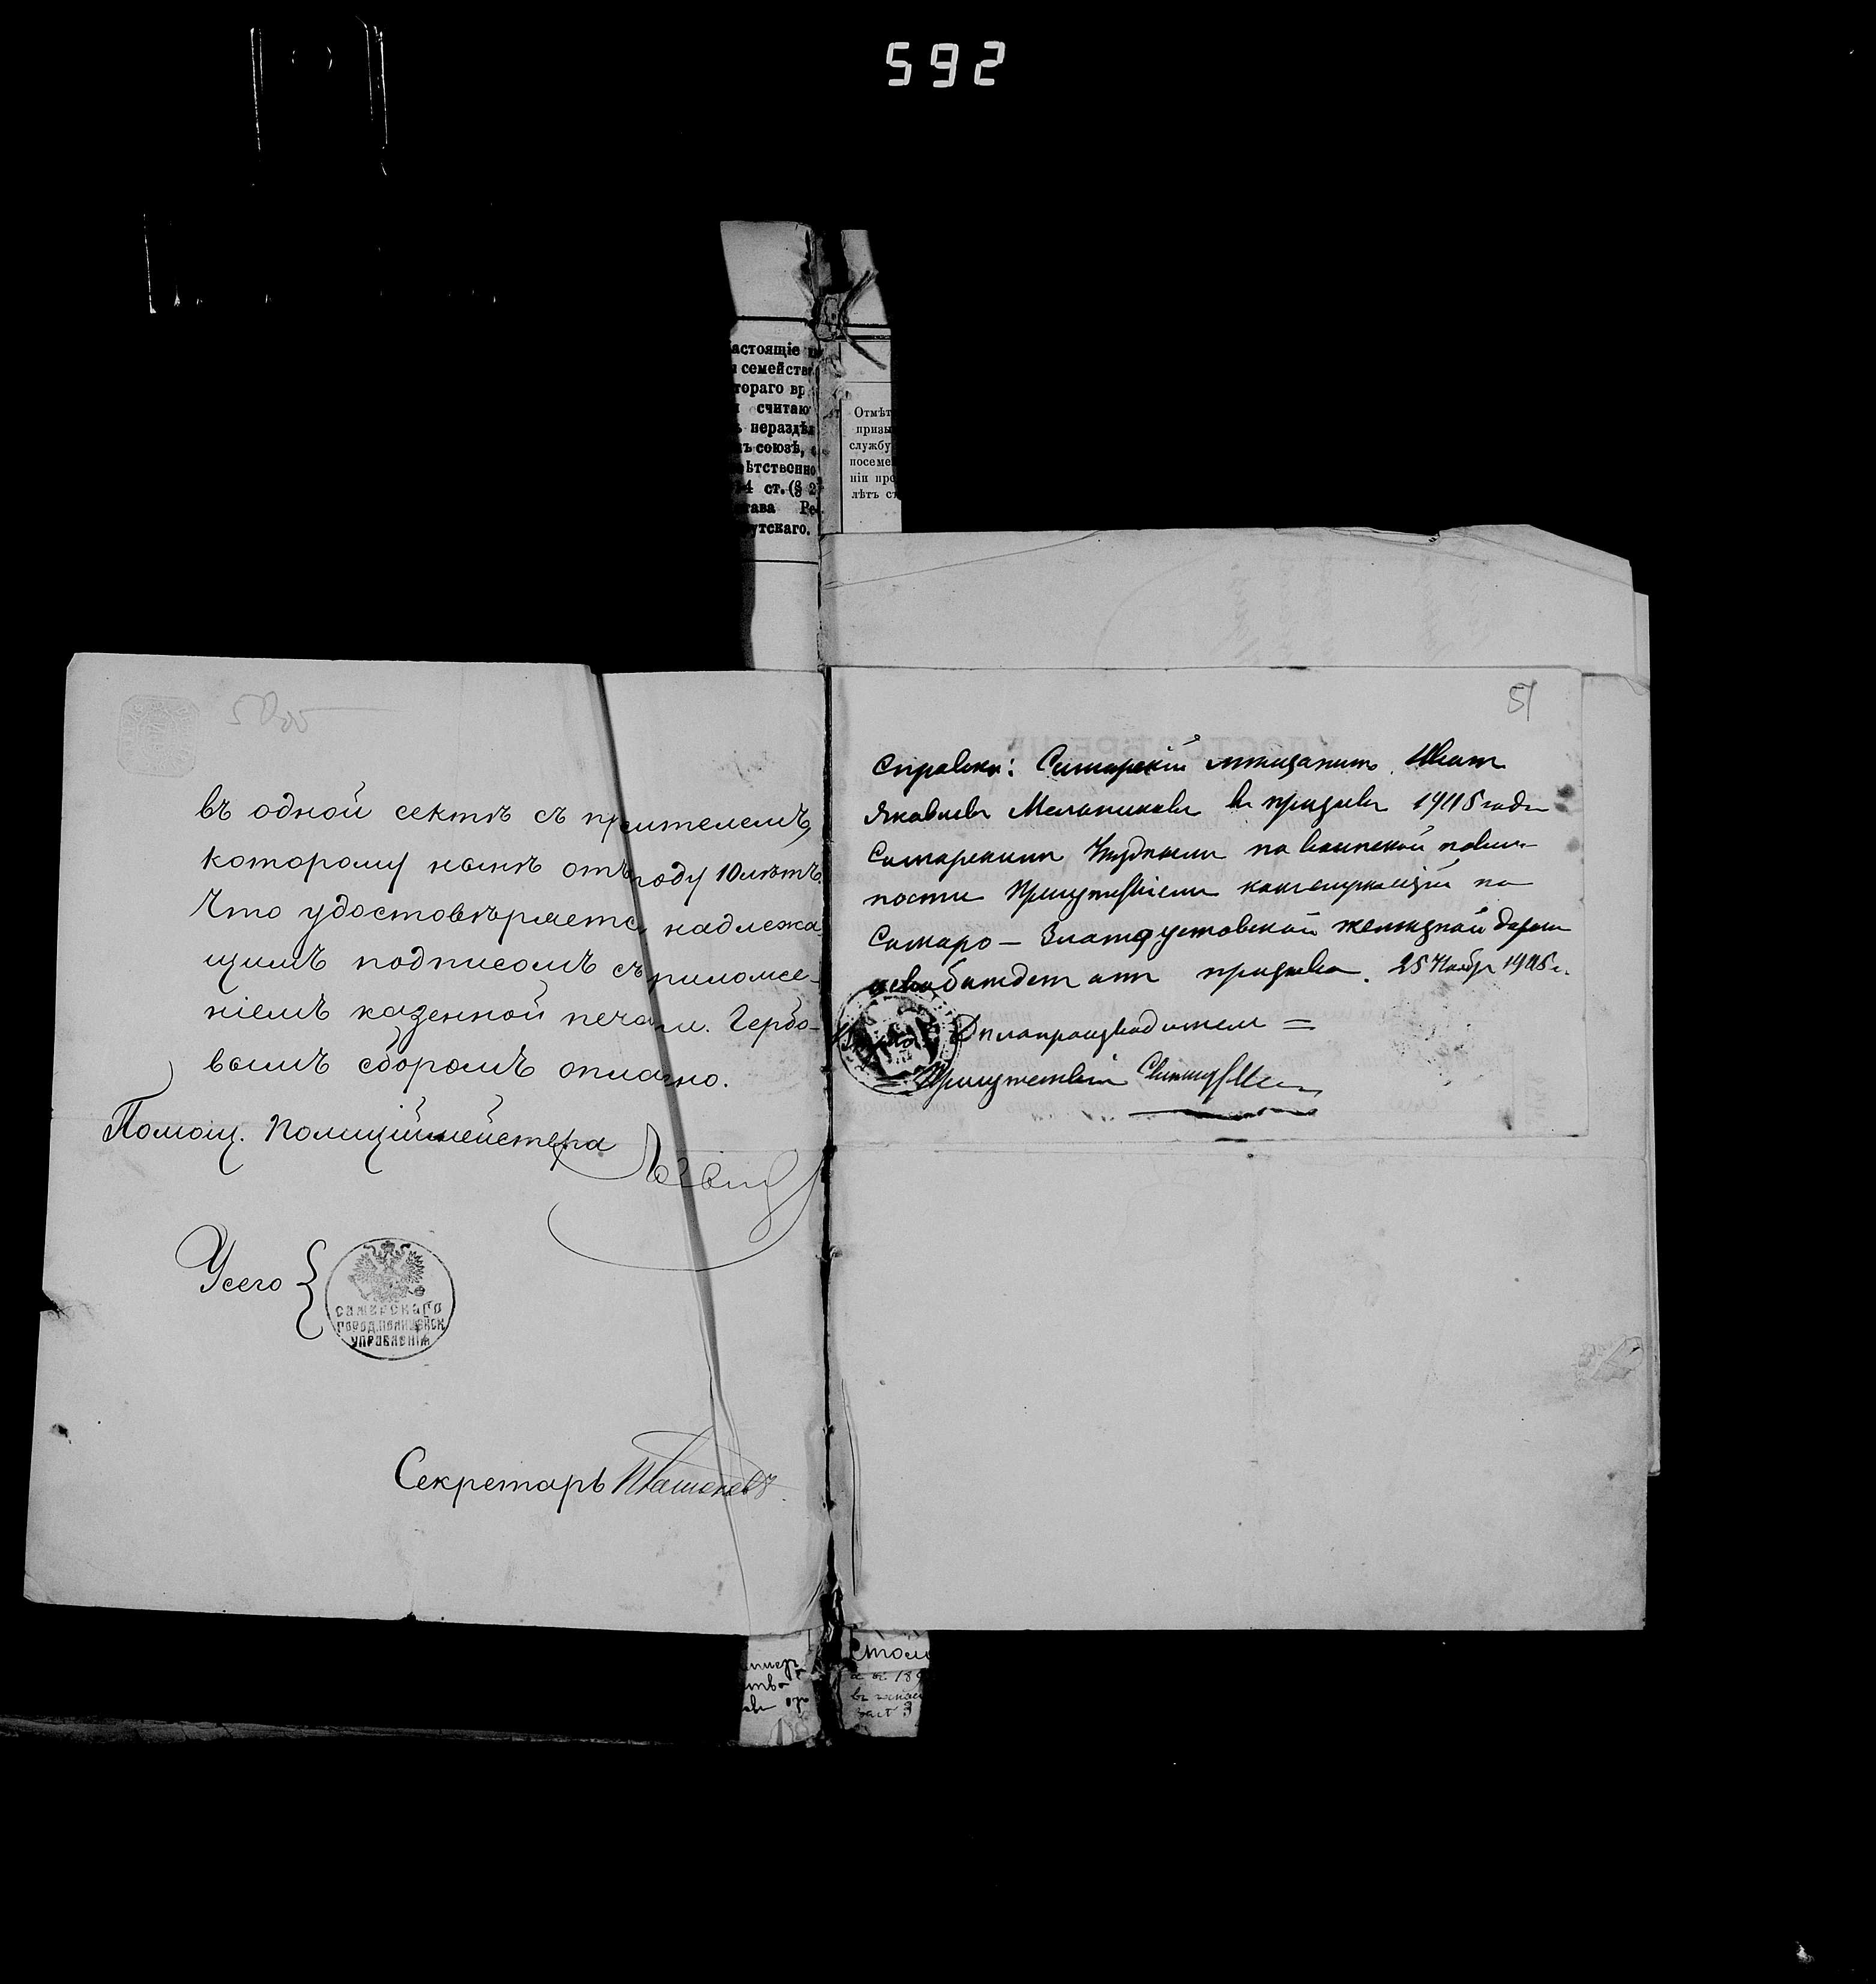 592
астоящіе
семейств
тораго вр
считаю
нераздѣл
ъ союзѣ,
ѣтственно
4 ст. (§ 2
тава Ре
утскаго.
Отмѣт
призы
службу
посеме
ніи про
лѣтъ с
въ одной сектѣ съ п ителемъ,
которому нынѣ отъ роду 10 лѣтъ.
Что удостовѣряетс надлежа
щимъ подписомъ съ риложе-
ніемъ казенной печа и. Гербо-
вымъ сборомъ опла но.
Помощ. Полиціймейстера
Усего
самарскаго
город. полицейск.
управленія
Секретарь
51
Справка: Самарскій мѣщанинъ Иванъ
Яковлевъ Мельниковъ въ призывъ 1905 года
Самарскимъ Уѣзднымъ по воинской повин-
ности Присутствіемъ
Самаро — Златоустовской желѣзной дороги
освобожденъ отъ призыва. 25 Ноября 1905 г.
Дѣлопроизводитель =
Присутствія